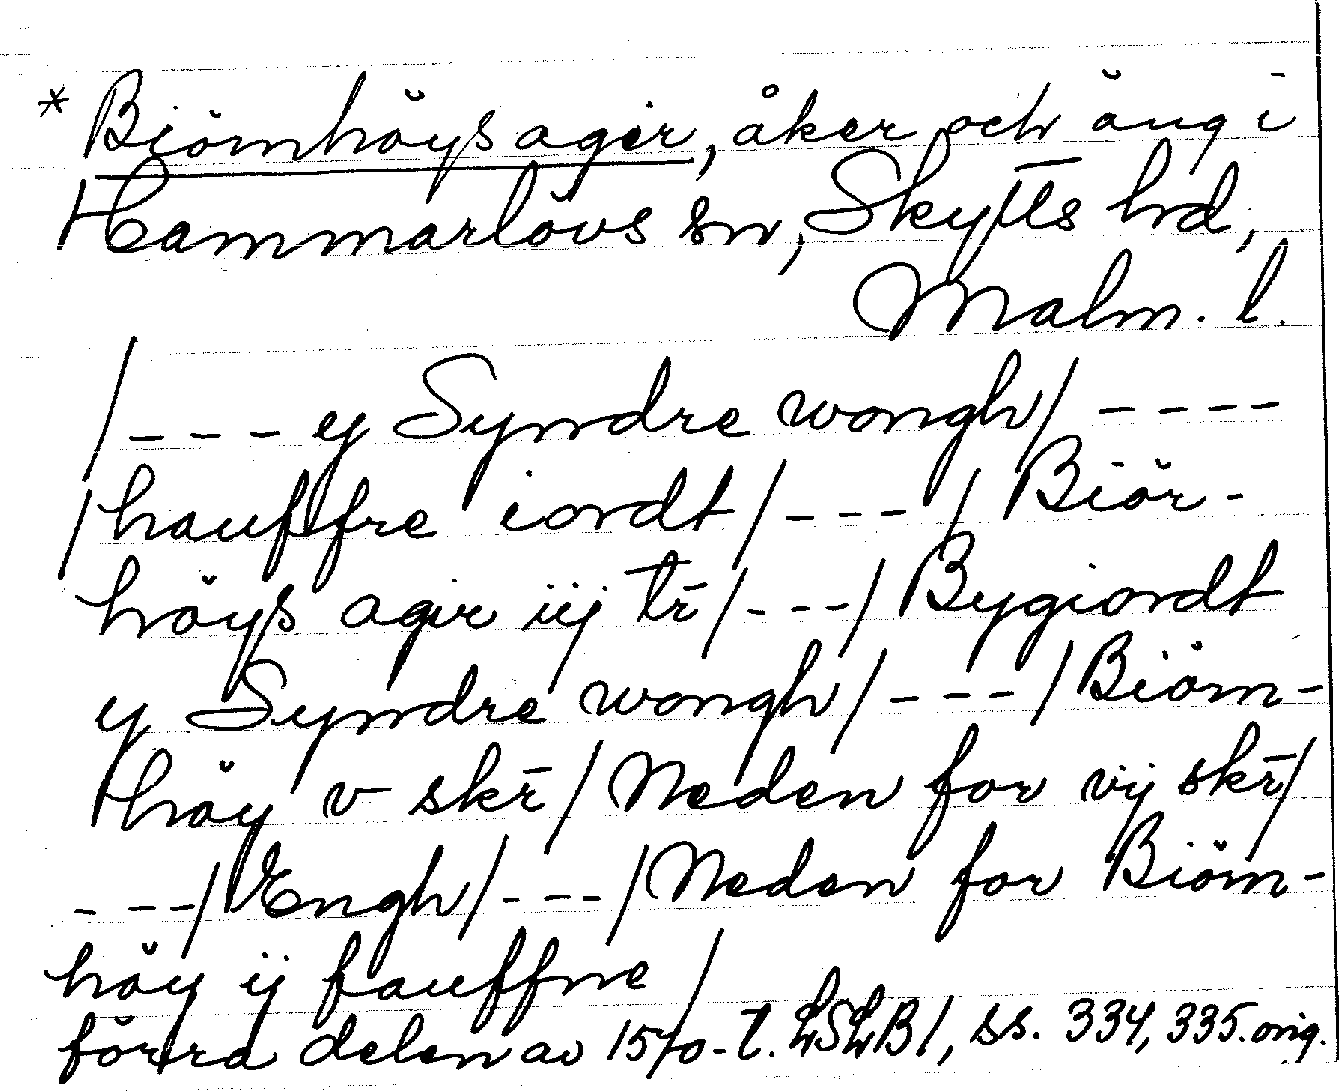 * Biörnhöys ager, åker och äng i
Hammarlövs sn, Skytts hd,
Malm. l.
/---y Syndre wongh/----
/hauffre iordt/---/Biör-
höys ager iij tr̄/---/Bygiordt
y Syndre wongh/---/Biörn-
höy v skr̄/Neden for vij skr̄/
---/Engh/---/Neden for Biörn-
höy ij fauffne/
förra delen av 1570-t. LSLB1, ss. 334, 335. orig.